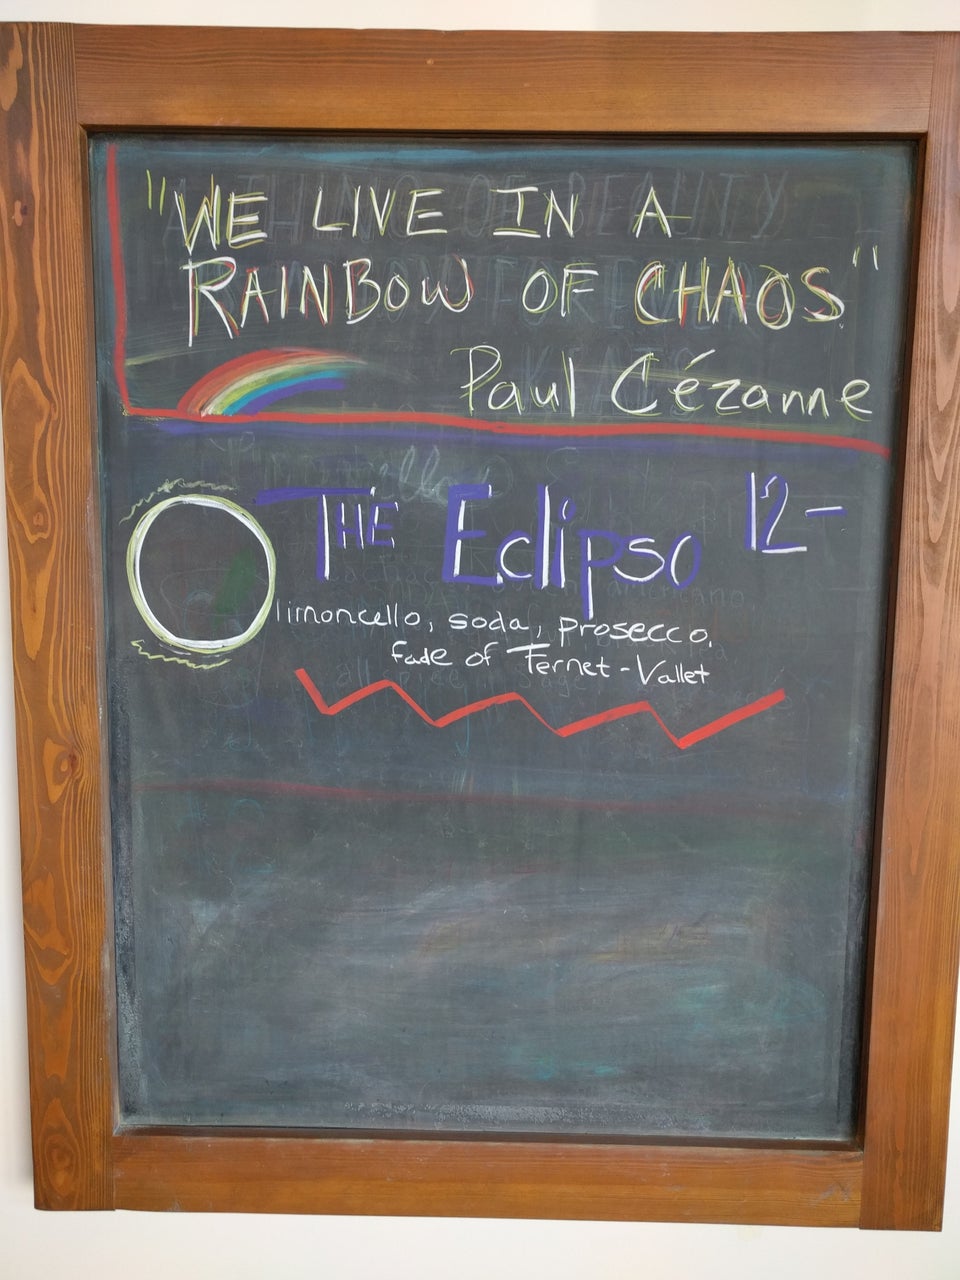 "WE LIVE IN A
RAINBOW OF CHAOS"
Paul Cézanne
THE Eclipso 12-
limoncello, soda, prosecco,
fade of Fernet-Vallet